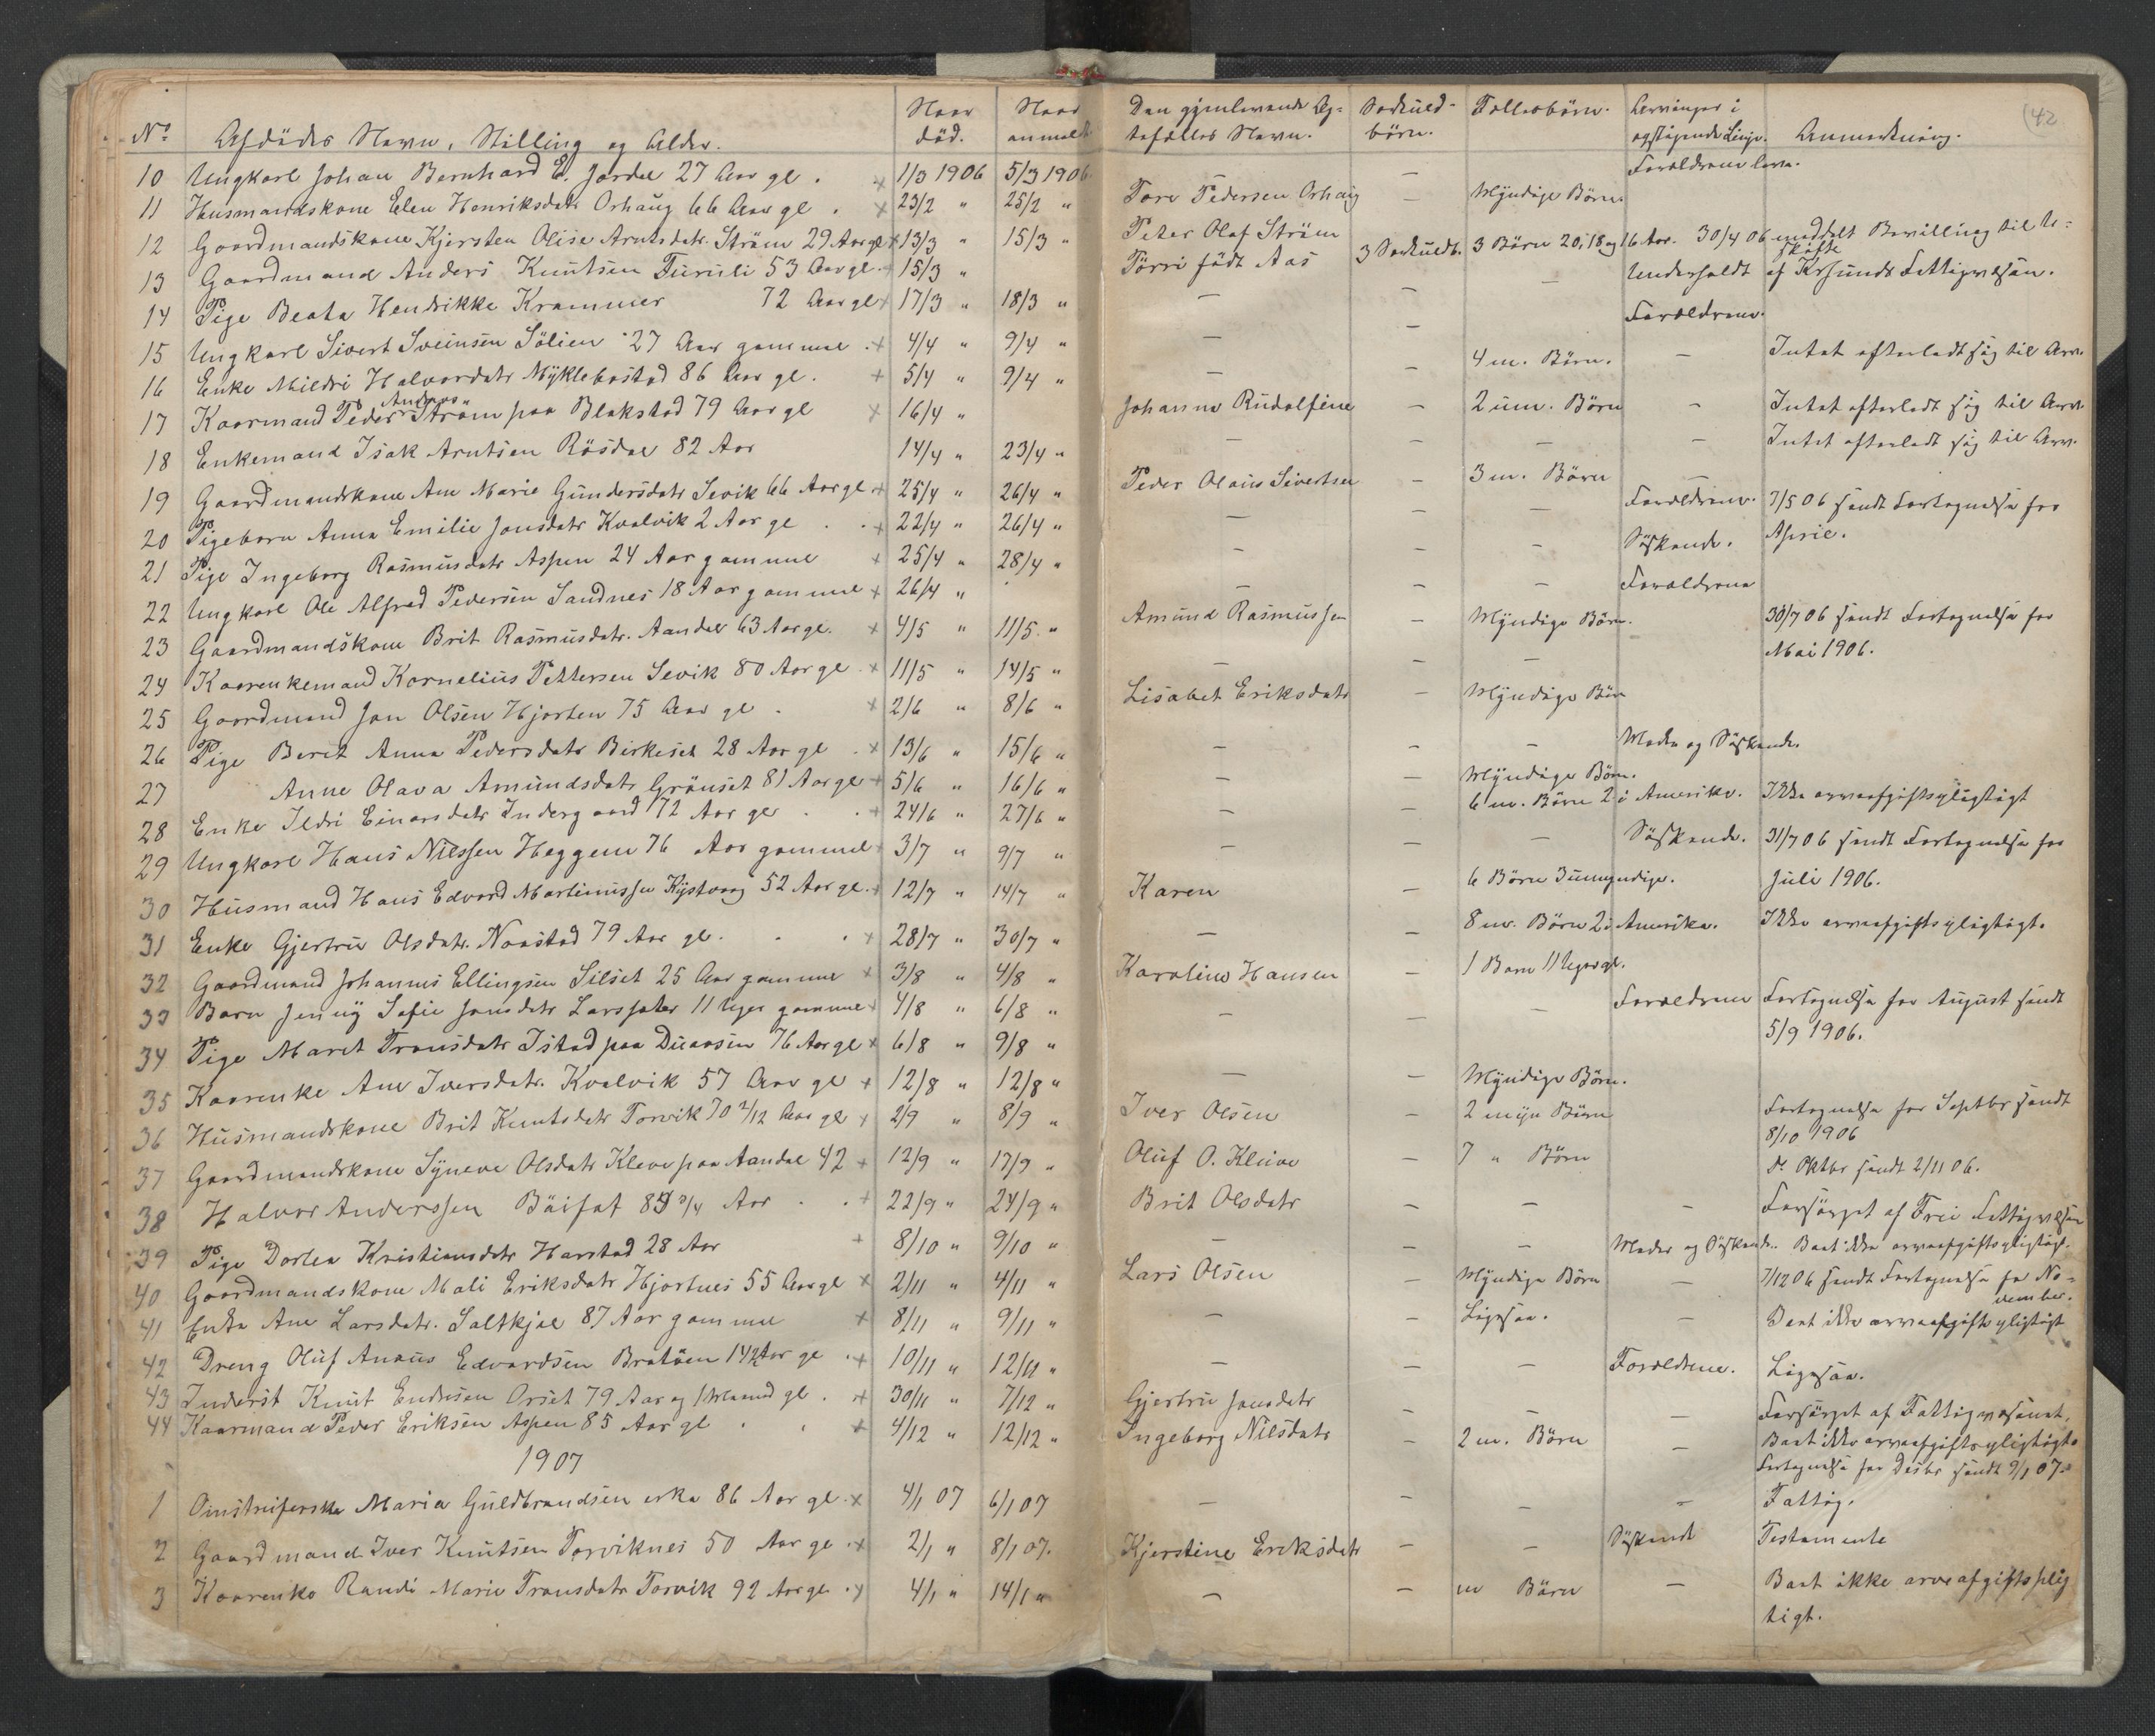 142
No Afdødes Navn, Stilling og Alder. Naar død. Naar anmeldt Den gjenlevende Ægtefælles Navn. Særkuldbørn. Fællesbørn. Arvinger i opstigende Linje. Anmerkning.
10 Ungkarl Johan Bernhard E. Jordal 27 Aar gl. 1/3 1906 5/3 1906 — Forældrene leve.
11 Husmandskone Elen Henriksdatr Orhaug 66 Aar gl. 23/2 " 25/2 " Tore Pedersen Orhaug — Myndige Børn.
12 Gaardmandskone Kjersten Olise Arntsdatr. Strøm 29 Aar gl 13/3 " 15/3 " Peter Olaf Strøm
13 Gaardmand Anders Knutsen Furuli 53 Aar gl. 15/3 " Törri födt Aas 3 Særkuldb. 3 Børn 20, 18 og 16 Aar. 30/4 06 meddelt Bevilling til Uskifte
14 Pige Beata Hendrikke Krammer 72 Aar gl 17/3 " 18/3 " — — — Underholdt af Krsunds Fattigvæsen.
15 Ungkarl Sivert Sveinsen Sölien 27 Aar gammel 4/4 " 9/4 " — — Forældrene.
16 Enke Mildri Halvordatr Myklebostad 86 Aar gl. 5/4 " 9/4 " — — 4 m. Børn. — Intet efterladt sig til Arv.
17 Kaarmand Peder Andreas Strøm paa Blakstad 79 Aar gl 16/4 " Johanna Rudolfine — 2 um. Børn — Intet efterladt sig til Arv.
18 Enkemand Isak Arntsen Rösdal 82 Aar 14/4 " 23/4 " — — — — Intet efterladt sig til Arv.
19 Gaardmandskone Ane Marie Gundersdatr Sevik 66 Aar gl 25/4 " 26/4 " Peder Olaus Sivertsen — 3 m. Børn —
20 Pigebarn Anna Emilie Jonsdatr Kvalvik 2 Aar gl 22/4 " 26/4 " — — — Forældrene. 7/5 06 sendt Fortegnelse for
21 Pige Ingeborg Rasmusdatr Aspen 24 Aar gammel 25/4 " 28/4 " — — — Søskende. April.
22 Ungkarl Ole Alfred Pedersen Sandnes 18 Aar gammel 26/4 " — — — Forældrene
23 Gaardmandskone Brit Rasmusdatr. Aandal 63 Aar gl. 4/5 " 11/5 " Amund Rasmussen — Myndige Børn. 30/7 06 sendt Fortegnelse for
24 Kaarenkemand Kornelius Pettersen Sevik 80 Aar gl 11/5 " 14/5 " — — — Mai 1906.
25 Gaardmand Jon Olsen Hjorten 75 Aar gl. 2/6 " 8/6 " Lisabet Eriksdatr — Myndige Børn
26 Pige Berit Anna Pedersdatr Birkeset 28 Aar gl. 13/6 " 15/6 " — — — Moder og Søskende.
27 Anne Olava Amundsdatr Grönset 81 Aar gl 5/6 " 16/6 " — — Myndige Børn.
28 Enke Ildri Einarsdatr Indergaard 72 Aar gl 24/6 " 27/6 " — — 6 m. Børn 2 i Amerika. Ikke arveafgiftspligtigt
29 Ungkarl Hans Nilssen Heggem 76 Aar gammel 3/7 " 9/7 " — — Søskende. 31/7 06 sendt Fortegnelse for
30 Husmand Hans Edvard Martinussen Kystvaag 52 Aar gl. 12/7 " 14/7 " Karen — 6 Børn 3 umyndige. Juli 1906.
31 Enke Gjertru Olsdatr. Naastad 79 Aar gl. 28/7 " 30/7 " — — 8 m. Børn 2 i Amerika. Ikke arveafgiftspligtigt.
32 Gaardmand Johannes Ellingsen Silset 25 Aar gammel 3/8 " 4/8 " Karoline Hansen — 1 Barn 11 Uger gl.
33 Barn Jenny Sofie Jonsdatr Larssæter 11 Uger gammel 4/8 " 6/8 " — — — Forældrene Fortegnelse for August sendt
34 Pige Marit Tronsdatr Istad paa Duaasen 76 Aar gl 6/8 " 9/8 " 5/9 1906.
35 Kaarenke Ane Iversdatr. Kvalvik 57 Aar gl 12/8 " 12/8 " — — Myndige Børn.
36 Husmandskone Brit Knutsdatr Torvik 70 2/12 Aar gl 2/9 " 8/9 " Iver Olsen — 2 myn Børn Fortegnelse for Septbr sendt 8/10 1906
37 Gaardmandskone Syneve Olsdatr Kleve paa Aandal 42 12/9 " 17/9 " Oluf O. Kleive — 7 " Børn do Oktbr sendt 2/11 06.
38 Halvor Anderssen Bäifat 85 3/4 Aar 22/9 " 24/9 " Brit Olsdatr — — — Forsørget af Frei Fattigvæsen
39 Pige Dortea Kristiansdatr Harstad 28 Aar 8/10 " 9/10 " — — — Moder og Søskende. Boet ikke arveafgiftspligtigt.
40 Gaardmandskone Mali Eriksdatr Hjortnes 55 Aar gl 2/11 " 4/11 " Lars Olsen — Myndige Børn — 7/12 06 sendt Fortegnelse for November.
41 Enke Ane Larsdatr. Saltkjel 87 Aar gammel 8/11 " 9/11 " — — Ligesaa. — Boet ikke arveafgiftspligtigt
42 Dreng Oluf Anaus Edvardsen Bratöen 14 1/2 Aar gl 10/11 " 12/11 " — — — Forældrene. Ligesaa.
43 Inderst Knut Endresen Orset 79 Aar og 1 Maaned gl. 30/11 " 7/12 " Gjertru Jonsdatr — — — Forsørget af Fattigvæsenet.
44 Kaarmand Peder Eriksen Aspen 85 Aar gl 4/12 " 12/12 " Ingeborg Nilsdatr — 2 m. Børn — Boet ikke arveafgiftspligtigt.
1907 Fortegnelse for Desbr sendt 9/1 07.
1 Omstreiferske Maria Guldbrandsen cirka 86 Aar gl. 4/1 07 6/1 07 — — — — Fattig.
2 Gaardmand Iver Knutsen Torviknes 50 Aar gl 2/1 " 8/1 07. Kjerstine Eriksdatr — — Søskende Testamente
3 Kaarenke Randi Marie Tronsdatr Torvik 92 Aar gl. 4/1 " 14/1 " — — m Børn — Boet ikke arveafgiftsplig
tigt.